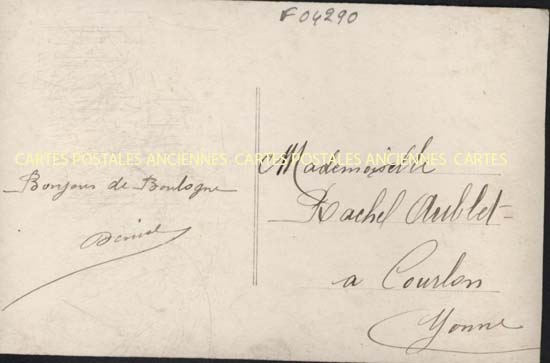 F04290
CARTES POSTALES ANCIENNES CARTES POSTALES ANCIENNES CARTES
Bonjour de Boulogne
Denise
Mademoiselle
Rachel Aublet
a Courlon
Yonne